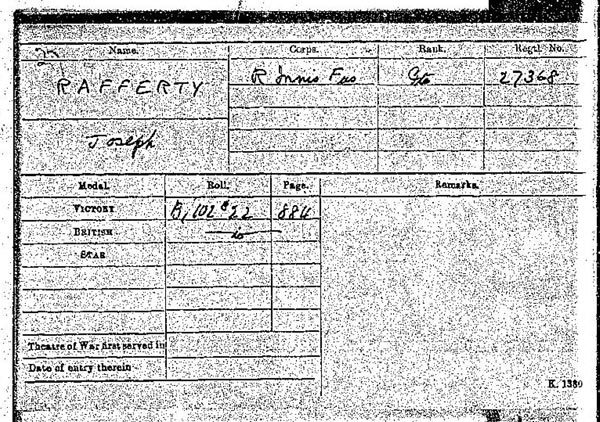 Name. Corps. Rank. Regtl. No.
RAFFERTY R Innis Fus Pte 27368
Joseph
Medal. Roll. Page. Remarks.
VICTORY 884
BRITISH
STAR
Theatre of War first served in
Date of entry therein
K. 1380